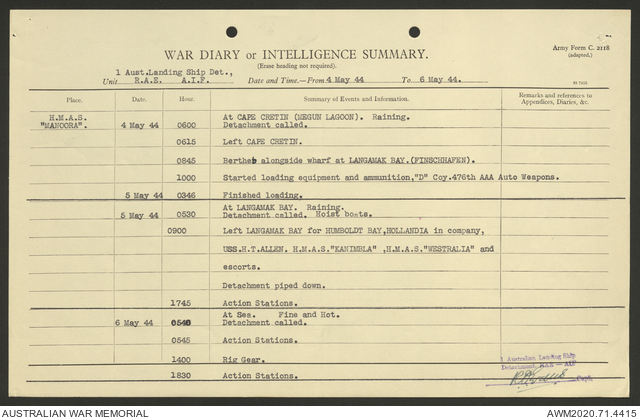 WAR DIARY or INTELLIGENCE SUMMARY.
Army Form C. 2118
(adapted.)
(Erase heading not required).
1 Aust.Landing Ship Det.,
Unit R.A.E. A.I.F. Date and Time.—From 4 May 44 To 6 May 44.
Place. Date. Hour. Summary of Events and Information. Remarks and references to Appendices, Diaries, &c.
H.M.A.S. At CAPE CRETIN (MEGUN LAGOON). Raining.
"MANOORA". 4 May 44 0600 Detachment called.
0615 Left CAPE CRETIN.
0845 Berthed alongside wharf at LANGAMAK BAY.(FINSCHHAFEN).
1000 Started loading equipment and ammunition,"D" Coy.476th AAA Auto Weapons.
5 May 44 0346 Finished loading.
At LANGAMAK BAY. Raining.
5 May 44 0530 Detachment called. Hoist boats.
0900 Left LANGAMAK BAY for HUMBOLDT BAY,HOLLANDIA in company,
USS.H.T.ALLEN. H.M.A.S."KANIMBLA" ,H.M.A.S."WESTRALIA" and
escorts.
Detachment piped down.
1745 Action Stations.
At Sea. Fine and Hot.
6 May 44 Detachment called.
0545 Action Stations.
1400 Rig Gear.
1830 Action Stations.
1 Australian Landing Ship
Detachment, RAE - AIF
Capt.
AUSTRALIAN WAR MEMORIAL
AWM2020.71.4415